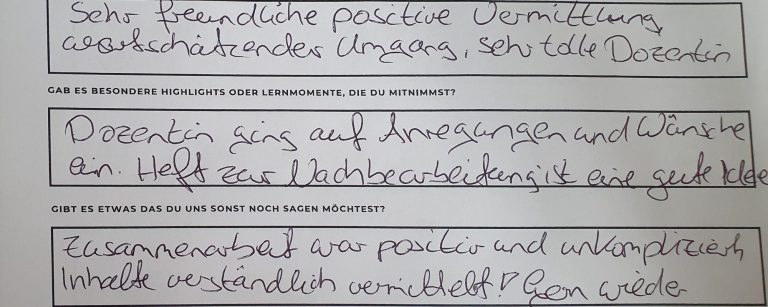 Sehr freundliche positive Vermittlung,
wertschätzender Umgang, sehr tolle Dozentin
GAB ES BESONDERE HIGHLIGHTS ODER LERNMOMENTE, DIE DU MITNIMMST?
Dozentin ging auf Anregungen und Wünsche
ein. Heft zur Nachbearbeitung ist eine gute Idee
GIBT ES ETWAS DAS DU UNS SONST NOCH SAGEN MÖCHTEST?
Zusammenarbeit war positiv und unkompliziert
Inhalte verständlich vermittelt! Gern wieder